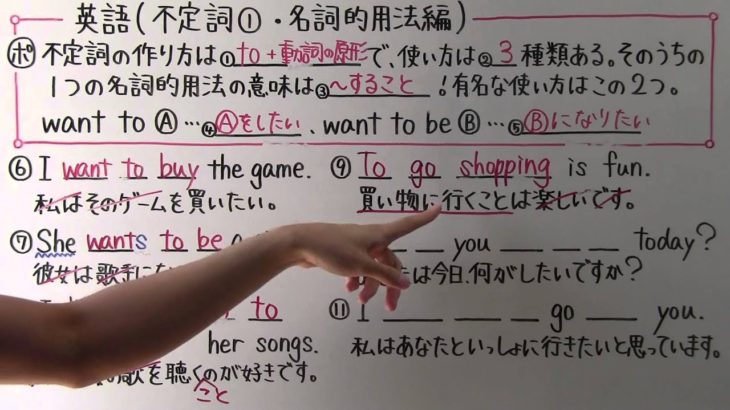 英語(不定詞①・名詞的用法編)
ポ 不定詞の作り方は①to+動詞の原形で、使い方は②3種類ある。そのうちの
1つの名詞的用法の意味は③~すること!有名な使い方はこの2つ。
want to Ⓐ…④Ⓐをしたい、want to be Ⓑ…⑤Ⓑになりたい
⑥ I want to buy the game.
私はそのゲームを買いたい。
⑦ She wants to be a
彼女は歌手にな
to
her songs.
歌を聴くのが好きです。
こと
⑨ To go shopping is fun.
買い物に行くことは楽しいです。
you today?
は今日、何がしたいですか?
⑪ I go you.
私はあなたといっしょに行きたいと思っています。